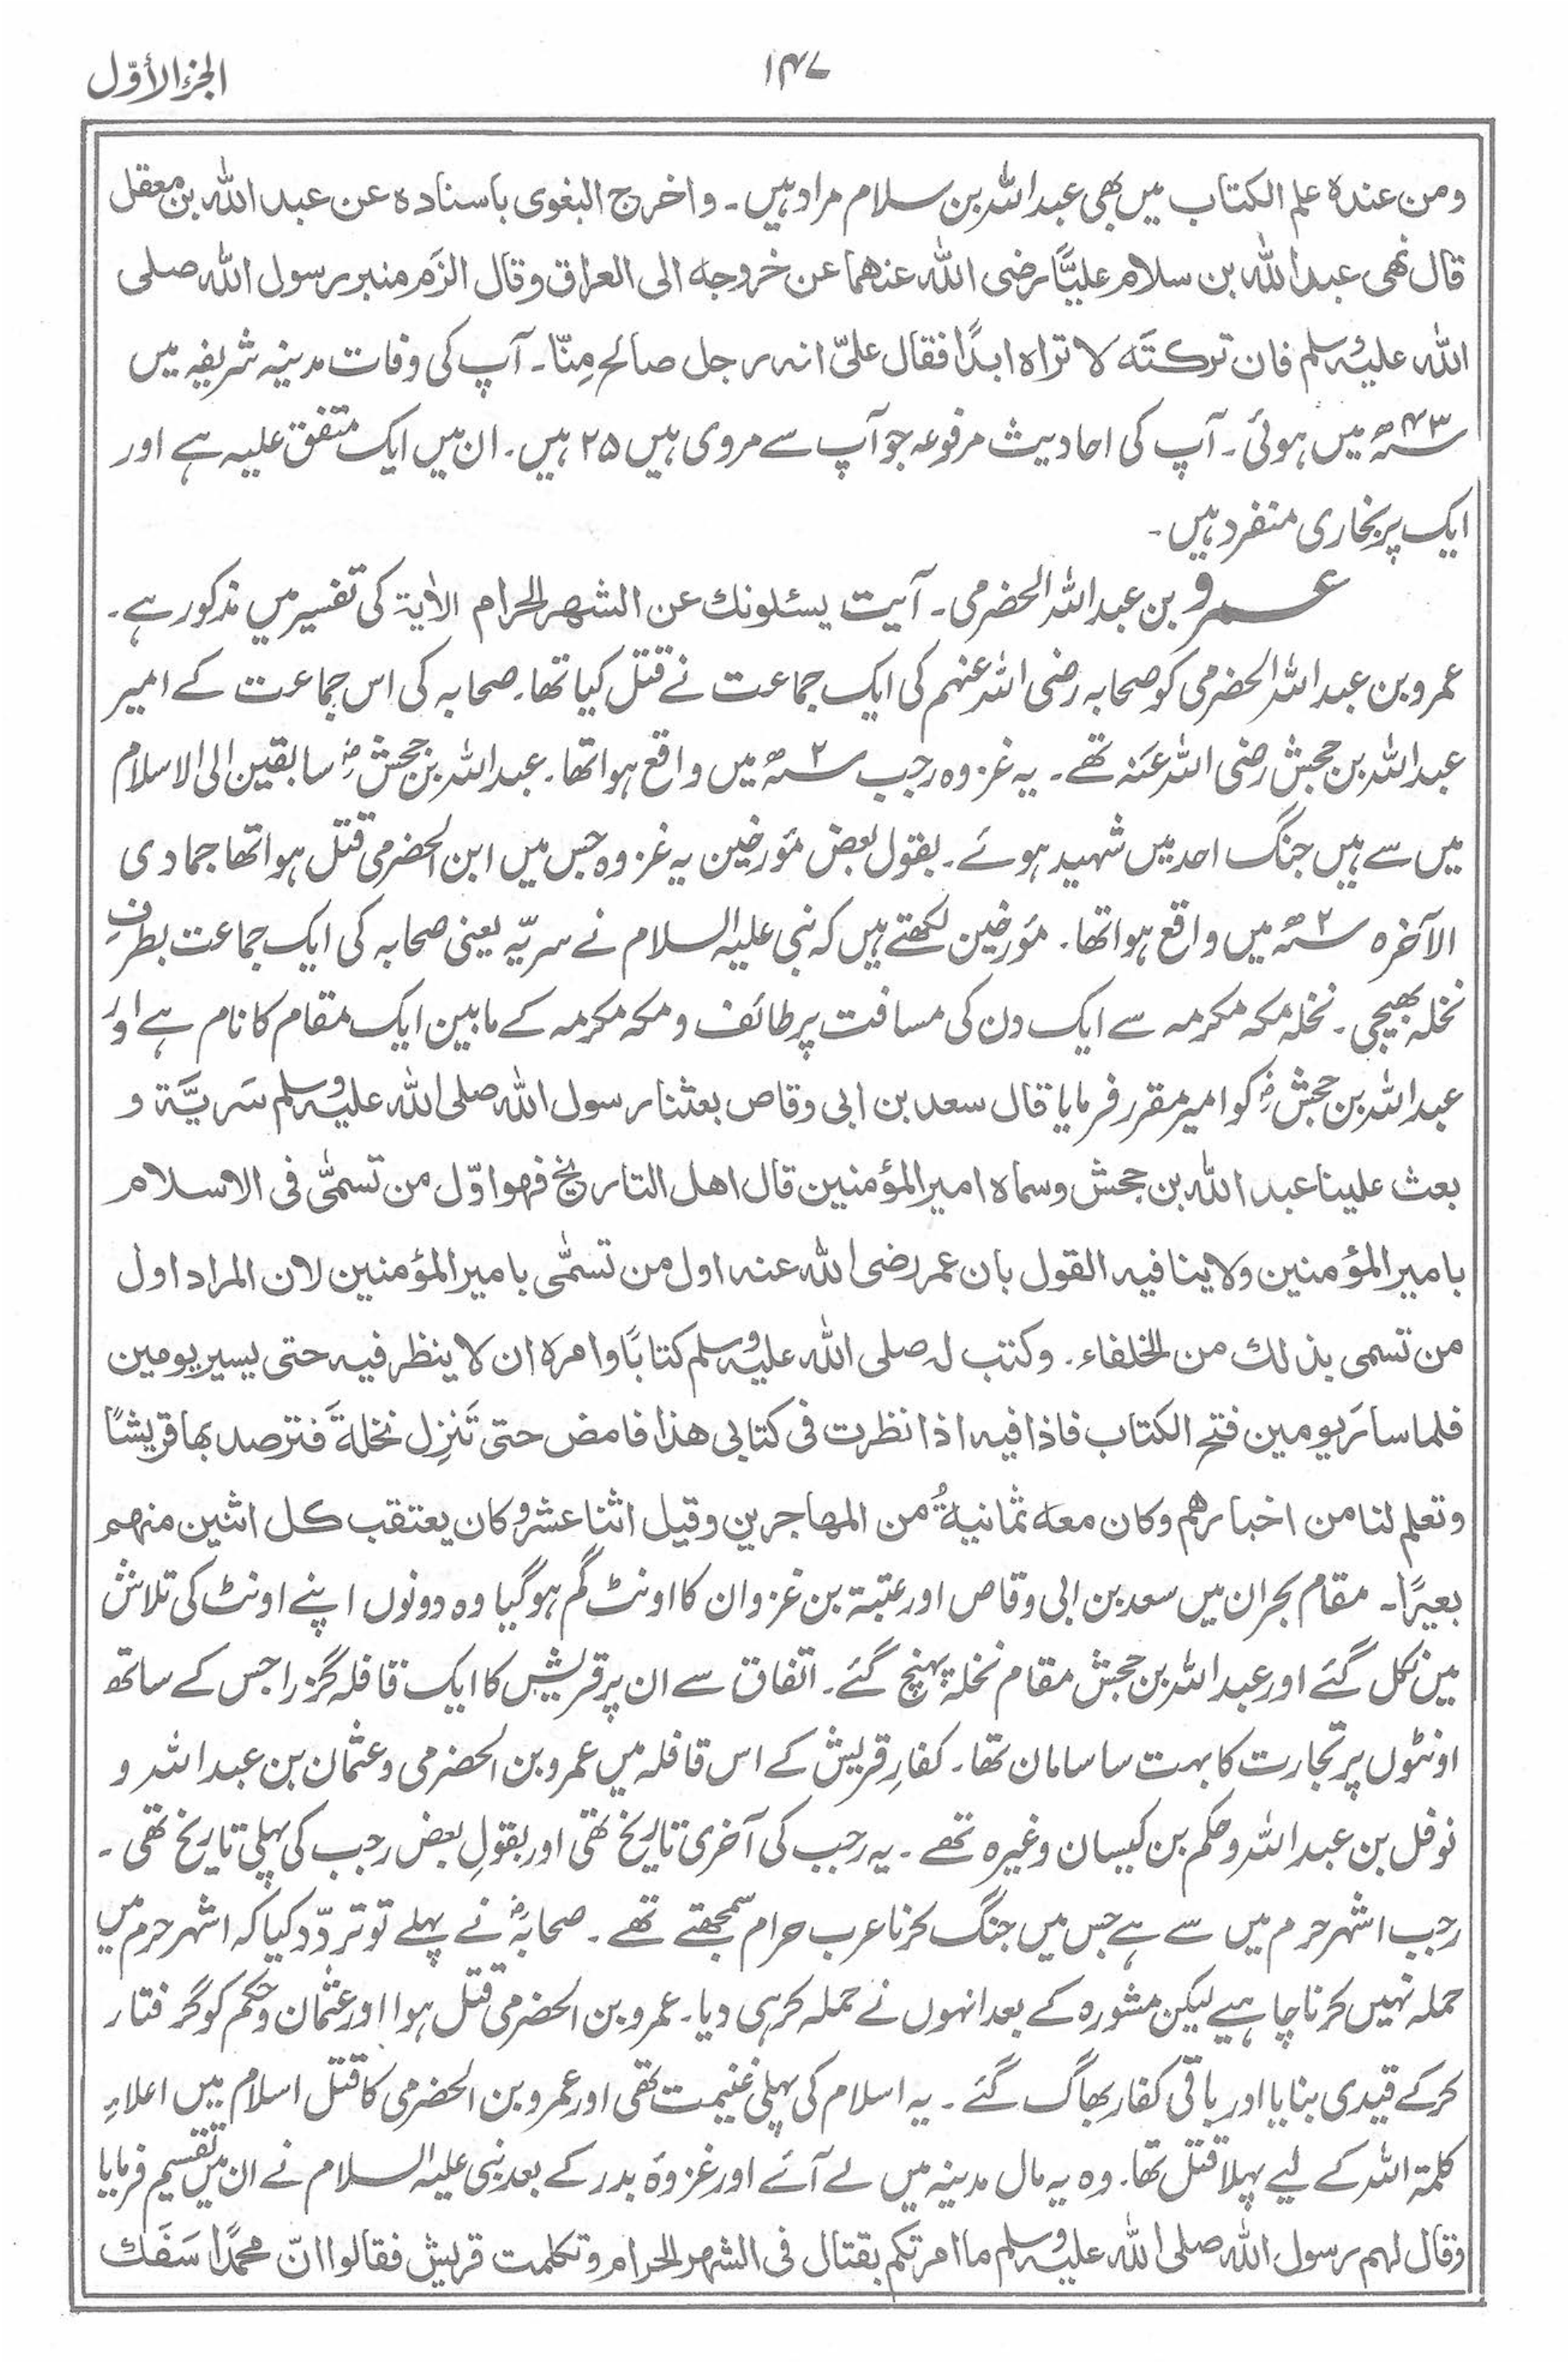 الجزء الأوّل
۱۴۷
ومن عندہ علم الکتاب میں بھی عبداللہ بن سلام مراد ہیں۔ واخرج البغوی باسنادہ عن عبد اللہ بن معقل
قال نھی عبد اللہ بن سلام علیًّا رضی اللہ عنھما عن خروجہ الی العراق وقال الزَم منبر رسول اللہ صلی
اللہ علیہ وسلم فان ترکتَہ لا تراہ ابدًا فقال علیّ انہ رجل صالح مِنّا۔ آپ کی وفات مدینہ شریفہ میں
۴۳ھ میں ہوئی۔ آپ کی احادیث مرفوعہ جو آپ سے مروی ہیں ۲۵ ہیں۔ ان میں ایک متفق علیہ ہے اور
ایک پر بخاری منفرد ہیں۔
عمرو بن عبداللہ الحضرمی۔ آیت یسئلونك عن الشھر الحرام الاٰیۃ کی تفسیر میں مذکور ہے۔
عمرو بن عبداللہ الحضرمی کو صحابہ رضی اللہ عنہم کی ایک جماعت نے قتل کیا تھا۔ صحابہ کی اس جماعت کے امیر
عبداللہ بن جحش رضی اللہ عنہ تھے۔ یہ غزوہ رجب ۲ھ میں واقع ہوا تھا۔ عبداللہ بن جحشؓ سابقین الی الاسلام
میں سے ہیں جنگ احد میں شہید ہوئے۔ بقول بعض مؤرخین یہ غزوہ جس میں ابن الحضرمی قتل ہوا تھا جمادی
الآخرہ ۲ھ میں واقع ہوا تھا۔ مؤرخین لکھتے ہیں کہ نبی علیہ السلام نے سریّہ یعنی صحابہ کی ایک جماعت بطرفِ
نخلہ بھیجی۔ نخلہ مکہ مکرمہ سے ایک دن کی مسافت پر طائف و مکہ مکرمہ کے مابین ایک مقام کا نام ہے اور
عبداللہ بن جحشؓ کو امیر مقرر فرمایا قال سعد بن ابی وقاص بعثنا رسول اللہ صلی اللہ علیہ وسلم سَریَّۃ و
بعث علینا عبد اللہ بن جحش وسماہ امیر المؤمنین قال اھل التاریخ فھو اوّل من تسمّٰی فی الاسلام
بامیر المؤمنین ولا ینافیہ القول بان عمر رضی اللہ عنہ اول من تسمّٰی بامیر المؤمنین لان المراد اول
من تسمی بذلك من الخلفاء۔ وکتب لہ صلی اللہ علیہ وسلم کتابًا وامرہ ان لا ینظر فیہ حتی یسیر یومین
فلما سارَ یومین فتح الکتاب فاذا فیہ اذا نظرت فی کتابی ھذا فامض حتی تَنزِل نخلۃَ فترصد بھا قریشًا
وتعلم لنا من اخبارھم وکان معہ ثمانیۃُ من المھاجرین وقیل اثنا عشر وکان یعتقب کل اثنین منھم
بعیرًا۔ مقام بحران میں سعد بن ابی وقاص اور عتبۃ بن غزوان کا اونٹ گم ہوگیا وہ دونوں اپنے اونٹ کی تلاش
میں نکل گئے اور عبداللہ بن جحش مقام نخلۃ پہنچ گئے۔ اتفاق سے ان پر قریش کا ایک قافلہ گزرا جس کے ساتھ
اونٹوں پر تجارت کا بہت سا سامان تھا۔ کفارِ قریش کے اس قافلہ میں عمرو بن الحضرمی و عثمان بن عبداللہ و
نوفل بن عبداللہ و حکم بن کیسان وغیرہ تھے۔ یہ رجب کی آخری تاریخ تھی اور بقولِ بعض رجب کی پہلی تاریخ تھی۔
رجب اشہر حرم میں سے ہے جس میں جنگ کرنا عرب حرام سمجھتے تھے۔ صحابہؓ نے پہلے تو تردّد کیا کہ اشہر حرم میں
حملہ نہیں کرنا چاہیے لیکن مشورہ کے بعد انہوں نے حملہ کر ہی دیا۔ عمرو بن الحضرمی قتل ہوا اور عثمان و حکم کو گرفتار
کرکے قیدی بنایا اور باقی کفار بھاگ گئے۔ یہ اسلام کی پہلی غنیمت تھی اور عمرو بن الحضرمی کا قتل اسلام میں اعلاءِ
کلمۃ اللہ کے لیے پہلا قتل تھا۔ وہ یہ مال مدینہ میں لے آئے اور غزوۂ بدر کے بعد نبی علیہ السلام نے ان میں تقسیم فرمایا
وقال لہم رسول اللہ صلی اللہ علیہ وسلم ما امرتکم بقتال فی الشھر الحرام وتکلمت قریش فقالوا انّ محمدًا سَفَك